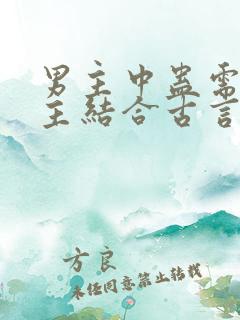 男主中蛊需
主结合古言
方良
未经同意禁止转载